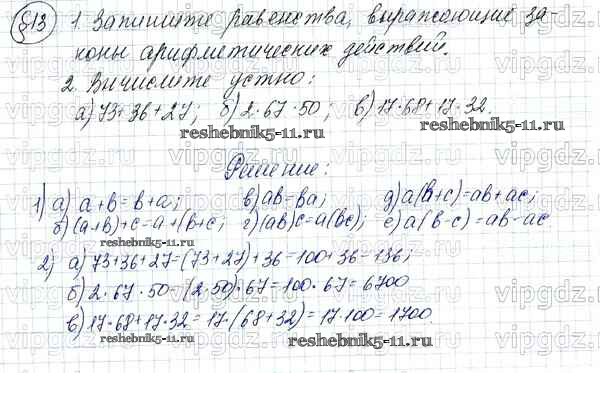 §13 1. Запишите равенства, выражающие за-
коны арифметических действий.
2. Вычислите устно:
а) 73+36+27; б) 2·67·50; в) 17·68+17·32.
reshebnik5-11.ru reshebnik5-11.ru
Решение:
1) а) a+b=b+a; в) ab=ba; д) a(b+c)=ab+ac;
б) (a+b)+c=a+(b+c; г) (ab)c=a(bc); е) a(b-c)=ab-ac
reshebnik5-11.ru
2) а) 73+36+27=(73+27)+36=100+36=136;
б) 2·67·50=(2·50)·67=100·67=6700
в) 17·68+17·32=17·(68+32)=17·100=1700.
reshebnik5-11.ru